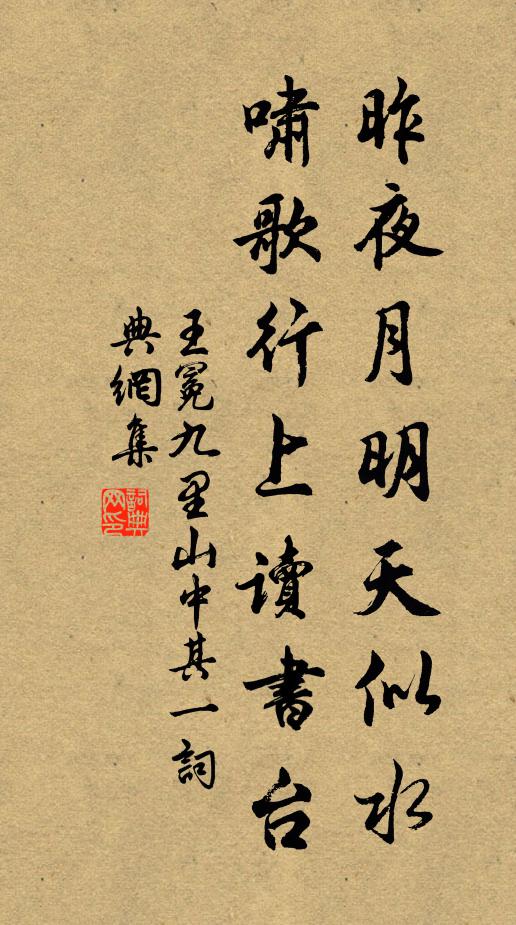 昨夜月明天似水
嘯歌行上讀書台
王冕九里山中其一詞
典網集
詞典網印